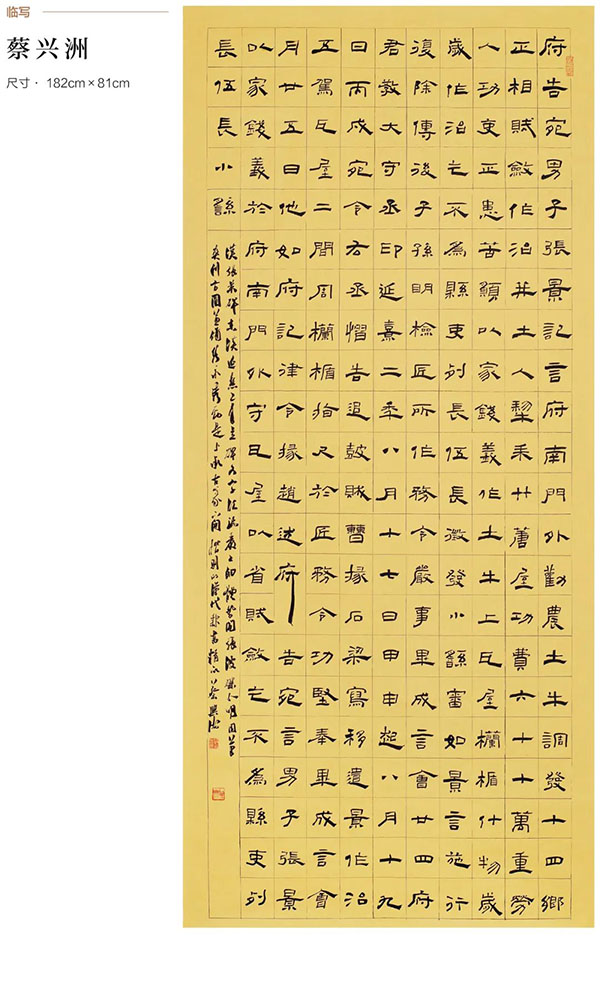 临写
蔡兴洲
尺寸· 182cm×81cm
府告宛男子張景記言府南門外勸農土牛調發十四鄉
正相賦斂作治并土人犂耒廿蓐屋功費六十十萬重勞
人功吏正患苦願以家錢義作土牛上瓦屋欄楯什物歲
歲作治乞不為縣吏列長伍長徵發小繇審如景言施行
復除傳後子孫明檢匠所作務令嚴事畢成言會廿四府
君教大守丞印延熹二年八月十七日甲申起八月十九
日丙戌宛令右丞慴告追鼓賊曹掾石梁寫移遣景作治
五駕瓦屋二間周欄楯拾尺於匠務令功堅奉畢成言會
月廿五日他如府記律令掾趙述府告宛言男子張景
以家錢義於府南門外守瓦屋以省賦斂乞不為縣吏列
長伍長小繇
漢張景碑